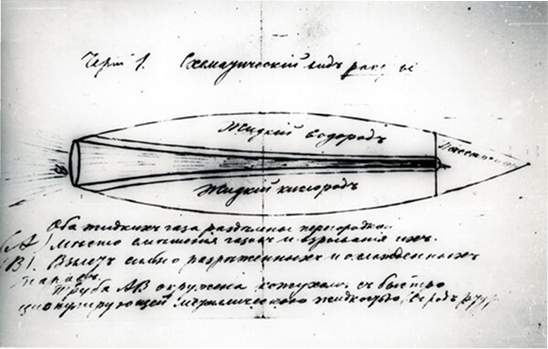 Черт 1. Схематическiй видъ ракеты
Жидкiй водородъ
Жидкiй кислородъ
Оба жидкихъ газа раздѣлены перегородкой
(A) Мѣсто смѣшенiя газовъ и взрыванiя ихъ.
(B). Вылетъ сильно разрѣженныхъ и охлажденныхъ
паровъ.
Труба АВ окружена кожухомъ съ быстро
циркулирующей металлического жидкостью